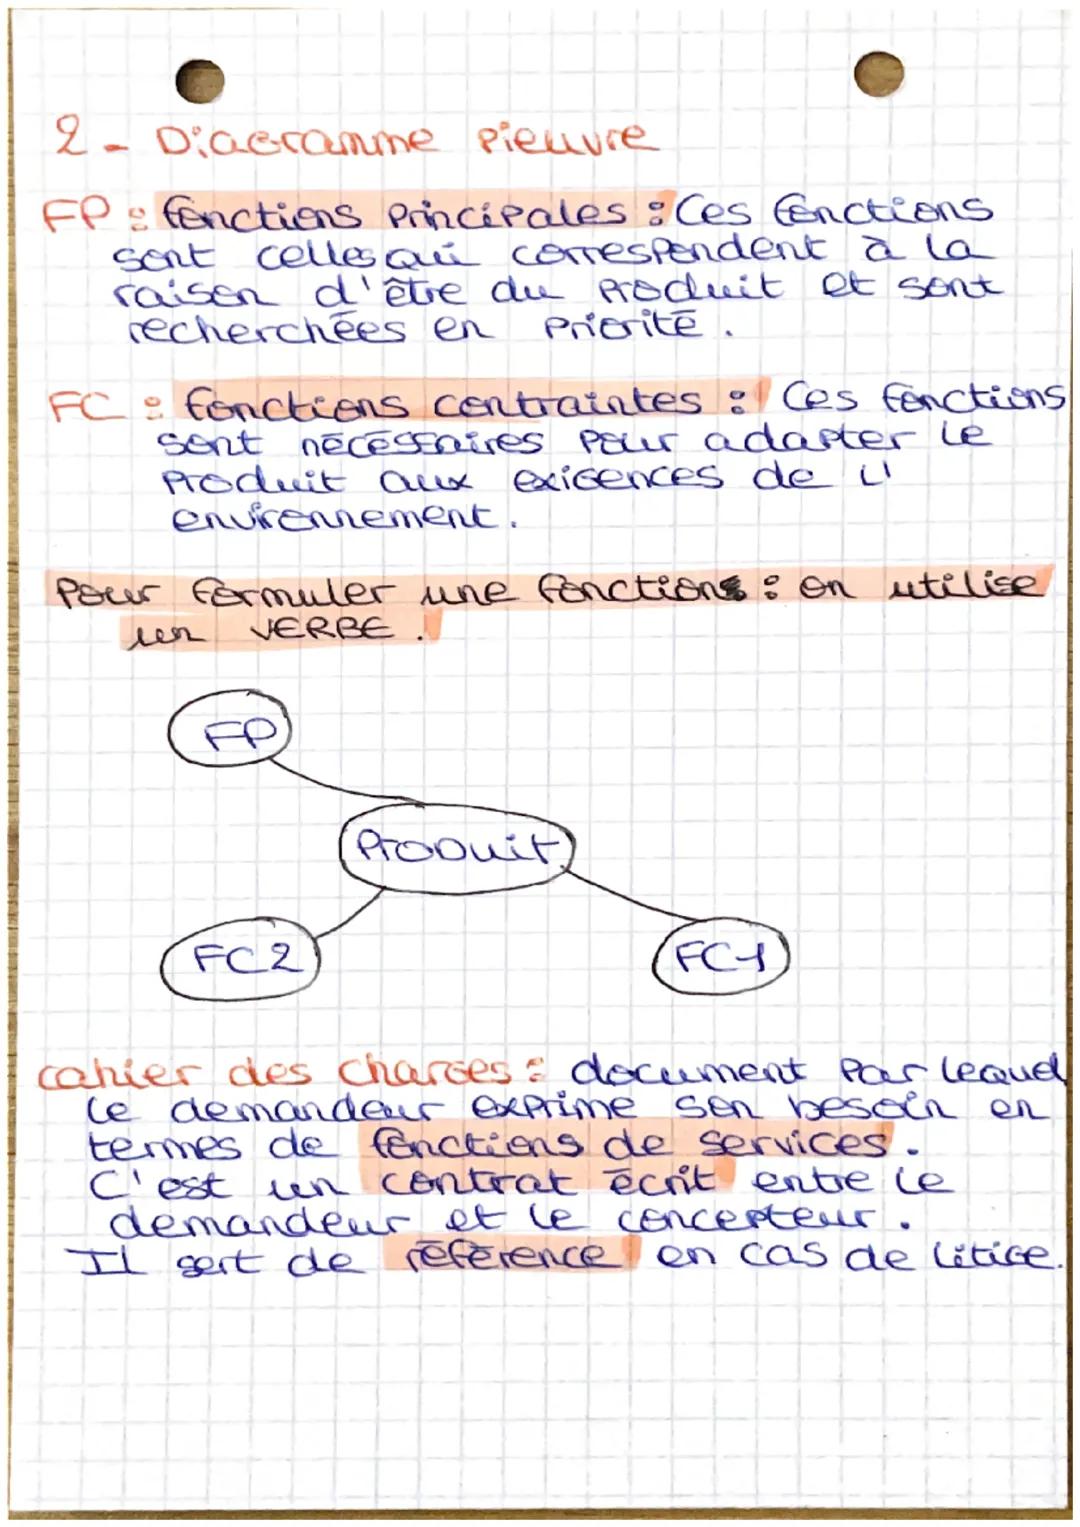 2 - Diagramme pieuvre
FP : fonctions principales : Ces fonctions
sont celles qui correspondent à la
raison d'être du produit et sont
recherchées en priorité.
FC : fonctions contraintes : Ces fonctions
sont nécessaires pour adapter le
produit aux exigences de l'
environnement.
Pour formuler une fonction : on utilise
un VERBE.
FP
Produit
FC2
FC1
cahier des charges : document par lequel
le demandeur exprime son besoin en
termes de fonctions de services.
C'est un contrat écrit entre le
demandeur et le concepteur.
Il sert de référence en cas de litige.